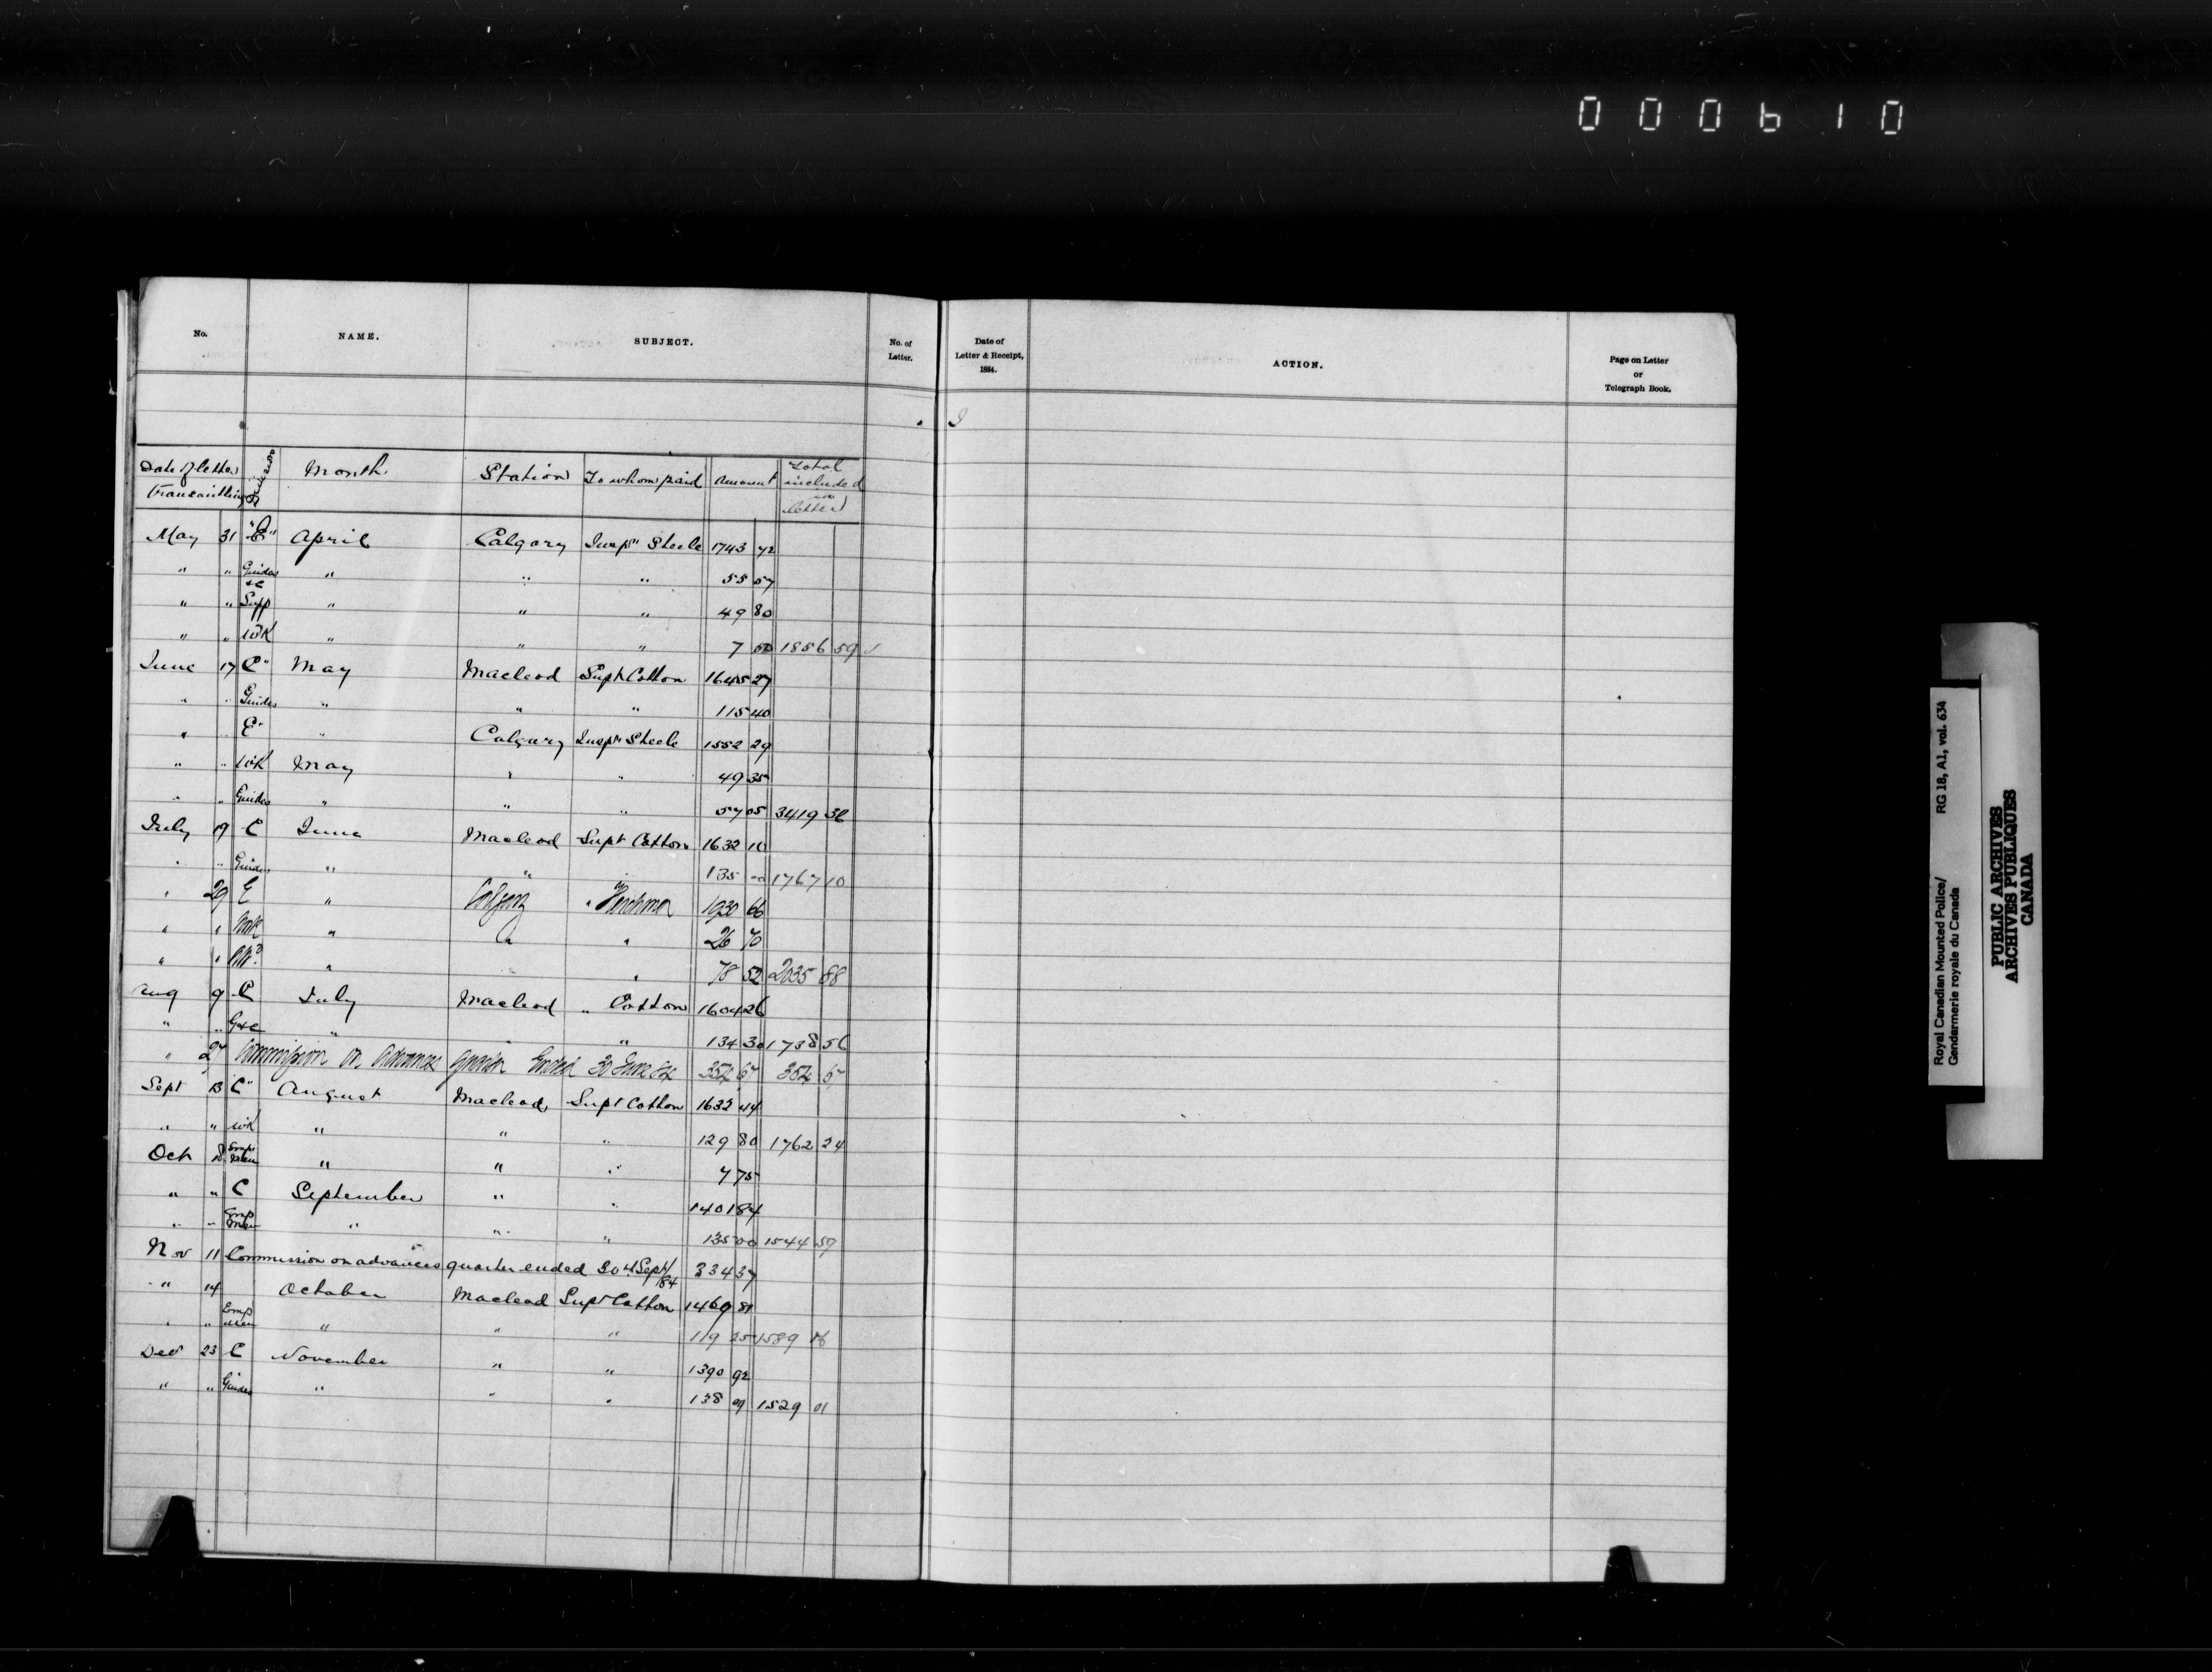 0 0 0 6 1 0
No. NAME. SUBJECT. No. of Letter.
Date of Letter & Receipt, 1884. ACTION. Page on Letter or Telegraph Book.
Date of letter transmitting Division Month Station To whom paid Amount Total included in letter
May 31 "E" April Calgary Inspr Steele 1743 72
" " Guides &c " " " 55 07
" " Supp " " " 49 80
" " Wk " " " 7 00 1856 59 ✓
June 17 C" May Macleod Supt Cotton 1645 27
" " Guides " " " 115 40
" " E" " Calgary Inspr Steele 1552 29
" " Wk May " " 49 35
" " Guides " " " 57 05 3419 36
July 19 C June Macleod Supt Cotton 1632 10
" " Guides " " " 135 00 1767 10
" 29 E " Calgary " Herchmer 1930 66
" " Wk " " " 26 70
" " " " 78 52 2035 88
Aug 9 C July Macleod " Cotton 1604 26
" " G&c " " 134 30 1738 56
" 27 Commission on Advances quarter Ended 30 June 84 352 67 352 67
Sept 13 C" August Macleod Supt Cotton 1632 44
" " Wk " " " 129 80 1762 24
Oct 18 Emp Men " " " 7 75
" " C September " " 1401 84
" " Emp Men " " " 135 00 1544 59
Nov 11 Commission on advances quarter ended 30th Sept/84 334 37
" 14 October Macleod Supt Cotton 1469 81
" " Emp Men " " " 119 35 1589 16
Dec 23 C November " " 1390 92
" " Guides " " " 138 09 1529 01
Royal Canadian Mounted Police/ RG 18, A1, vol. 634
Gendarmerie royale du Canada
PUBLIC ARCHIVES
ARCHIVES PUBLIQUES
CANADA